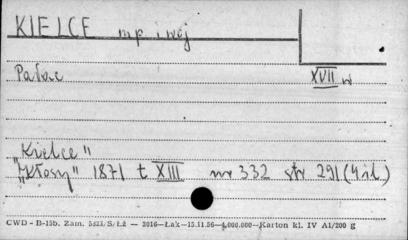 KIELCE mp i woj
Pałac XVII w
Kielce"
"Kłosy" 1871 t XIII nr 332 str 291 (4 il)
CWD - D-15b. Zam. S/Łż — 2016—Łak—15.11.56—4.000.000—Karton kl. IV A1/200 g